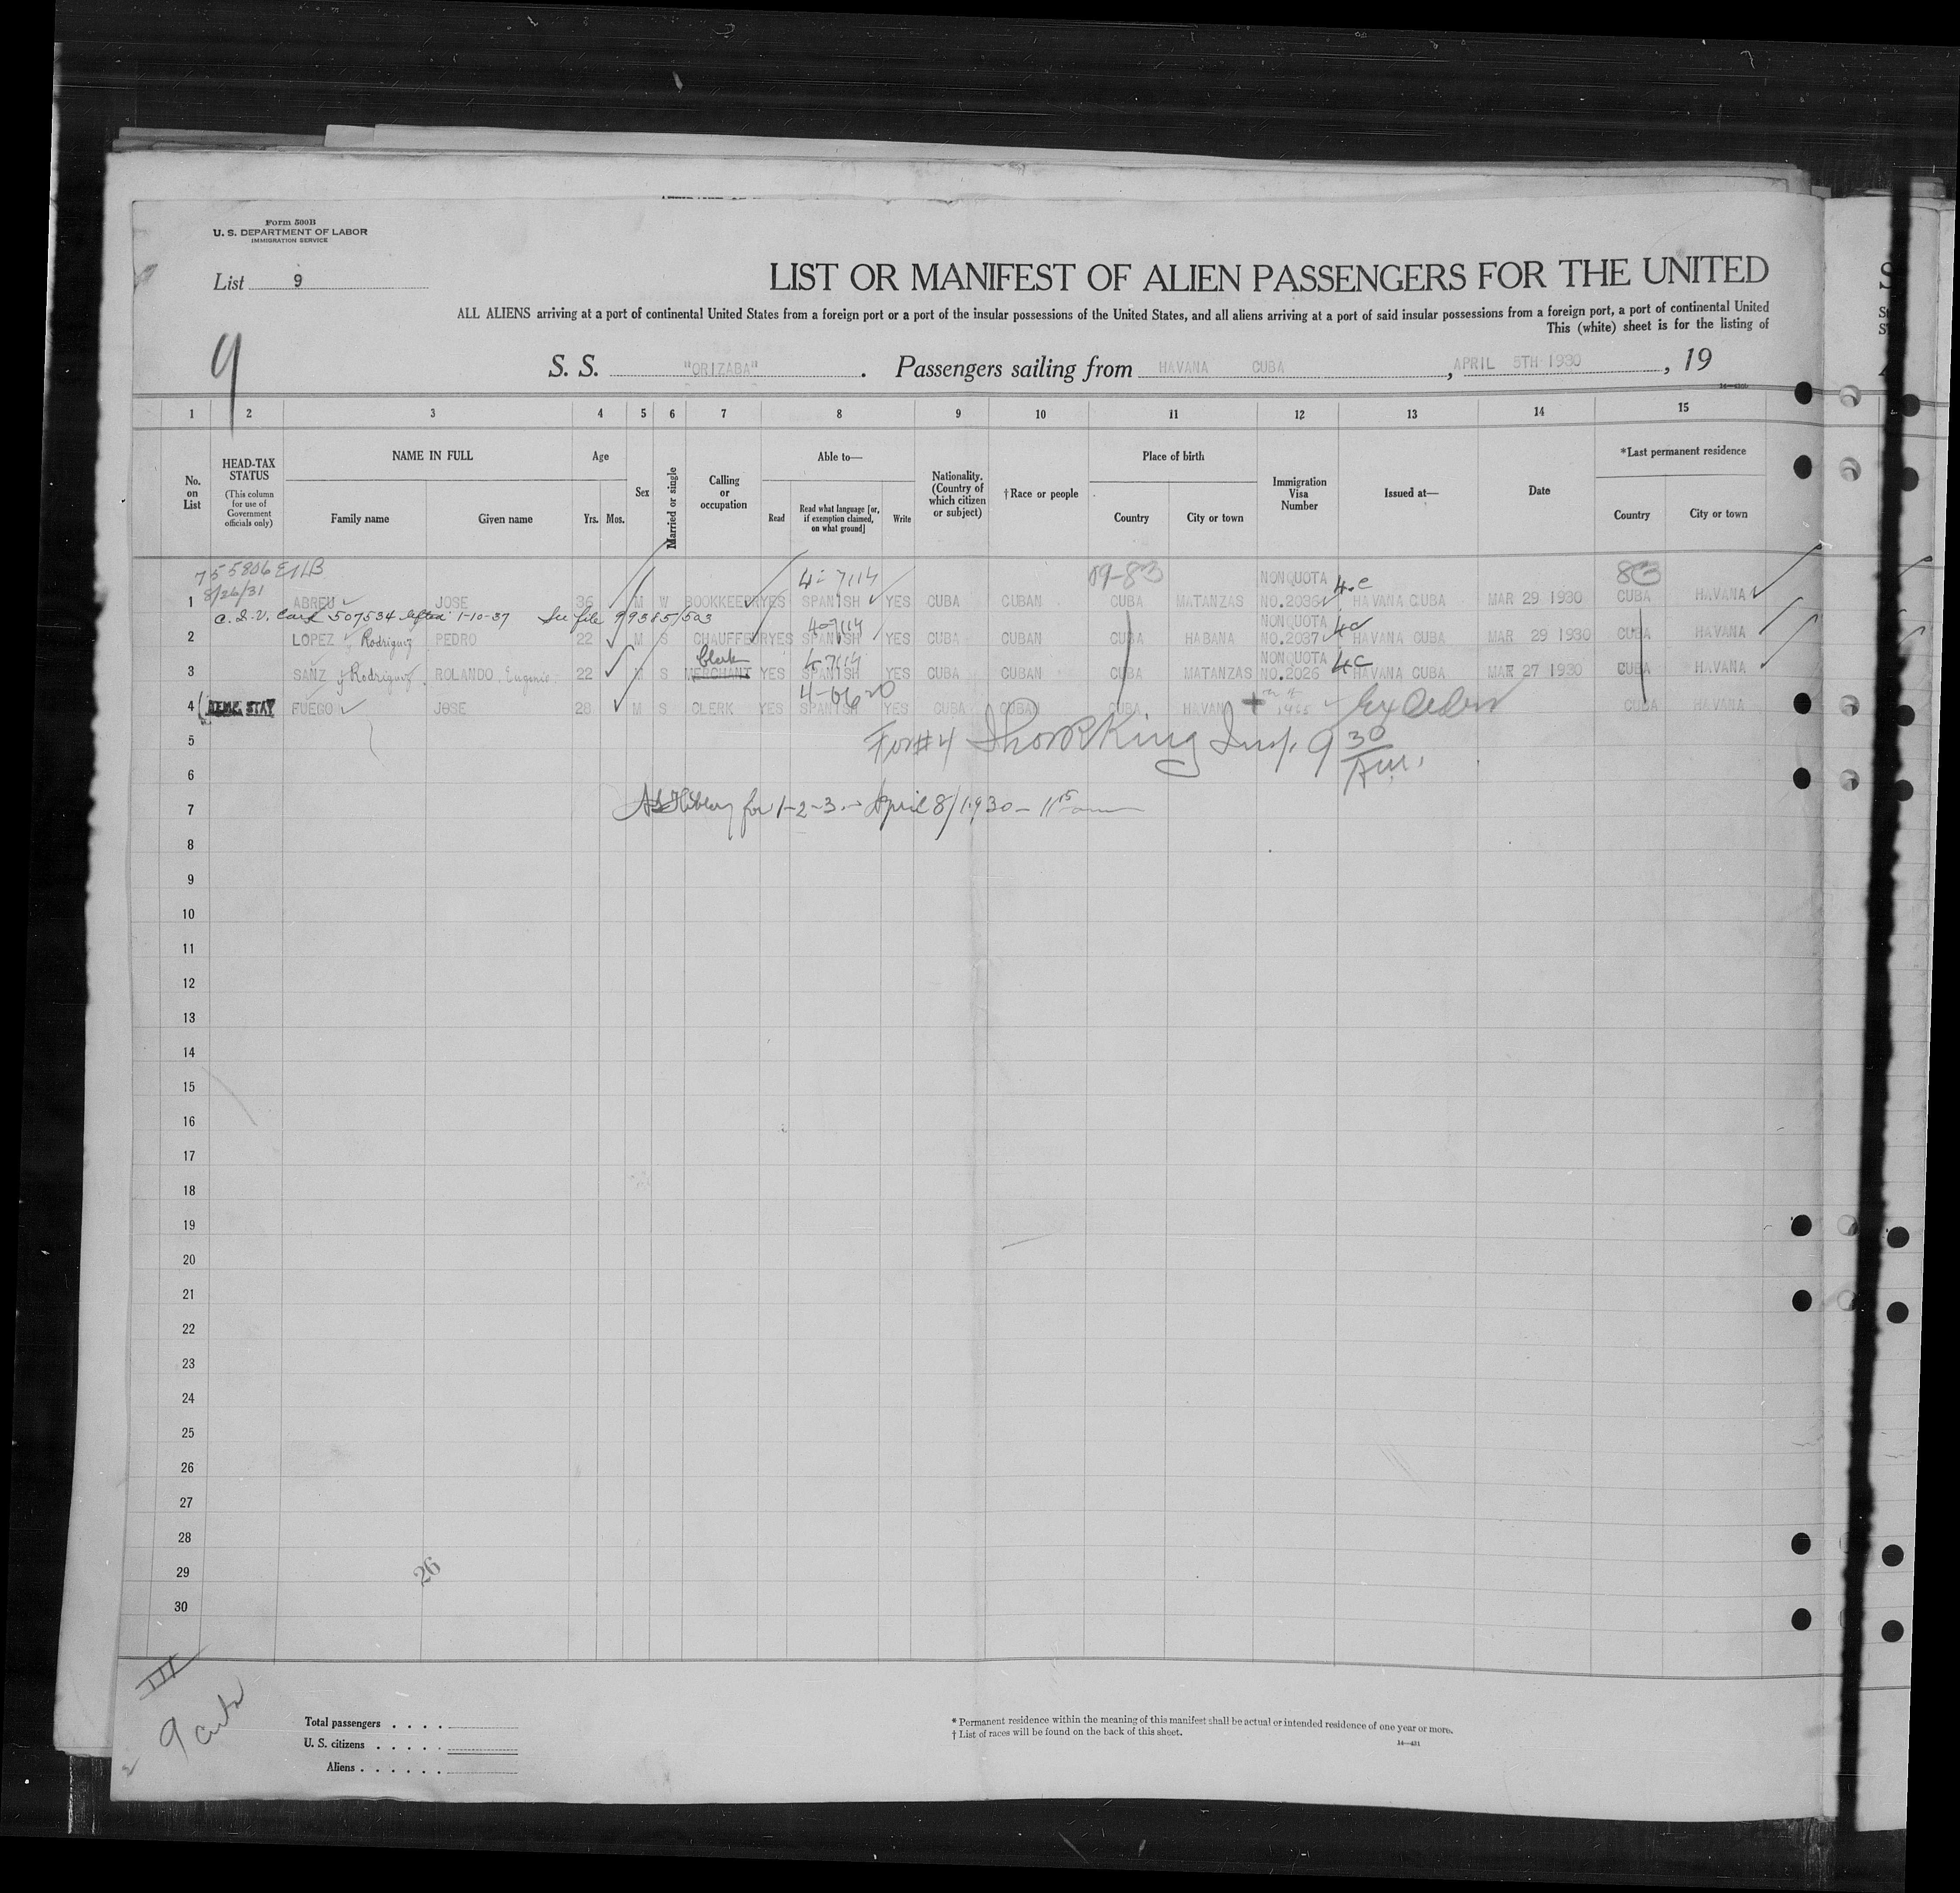 Form 500B
U. S. DEPARTMENT OF LABOR
IMMIGRATION SERVICE
List 9
LIST OR MANIFEST OF ALIEN PASSENGERS FOR THE UNITED
ALL ALIENS arriving at a port of continental United States from a foreign port or a port of the insular possessions of the United States, and all aliens arriving at a port of said insular possessions from a foreign port, a port of continental United
This (white) sheet is for the listing of
9
S. S. "ORIZABA". Passengers sailing from HAVANA CUBA, APRIL 5TH 1930, 19
1 2 3 4 5 6 7 8 9 10 11 12 13 14 15
No. on List
HEAD-TAX STATUS
(This column for use of Government officials only)
NAME IN FULL
Family name
Given name
Age
Yrs. Mos.
Sex
Married or single
Calling or occupation
Able to—
Read
Read what language [or, if exemption claimed, on what ground]
Write
Nationality. (Country of which citizen or subject)
†Race or people
Place of birth
Country
City or town
Immigration Visa Number
Issued at—
Date
*Last permanent residence
Country
City or town
755806
8/26/31
4-7114
09-83
83
1 ABREU JOSE 36 M W BOOKKEEPR YES SPANISH YES CUBA CUBAN CUBA MATANZAS NONQUOTA NO.2036 4.C HAVANA CUBA MAR 29 1930 CUBA HAVANA
C.I.V. Card 507534 1-10-37 See file 99385/503
4-7114
2 LOPEZ y Rodriguez PEDRO 22 M S CHAUFFEUR YES SPANISH YES CUBA CUBAN CUBA HABANA NONQUOTA NO.2037 4C HAVANA CUBA MAR 29 1930 CUBA HAVANA
Clerk
4-7114
3 SANZ y Rodriguez ROLANDO, Eugenio 22 M S MERCHANT YES SPANISH YES CUBA CUBAN CUBA MATANZAS NONQUOTA NO.2026 4C HAVANA CUBA MAR 27 1930 CUBA HAVANA
4 TEMP. STAY FUEGO JOSE 28 M S CLERK YES SPANISH YES CUBA CUBAN CUBA HAVAN CUBA HAVANA
5
For #4 King Insp. 9 30 A.M.
6
7
for 1-2-3 - April 8/1930 - 11 15 am
8
9
10
11
12
13
14
15
16
17
18
19
20
21
22
23
24
25
26
27
28
29
30
26
III
9
Total passengers
U. S. citizens
Aliens
* Permanent residence within the meaning of this manifest shall be actual or intended residence of one year or more.
† List of races will be found on the back of this sheet.
14—431